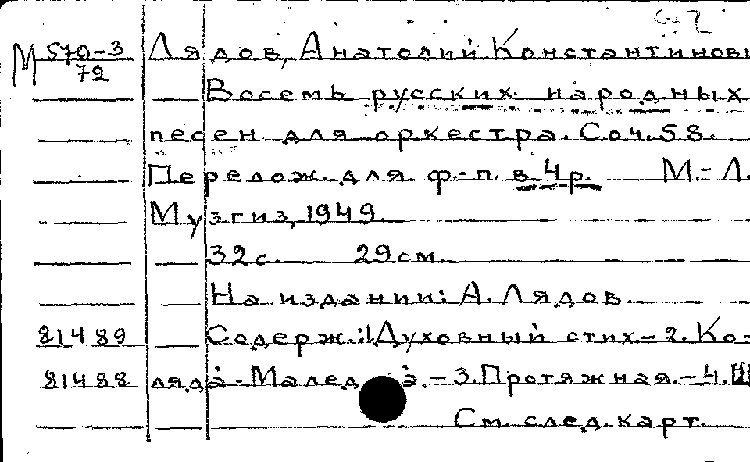 М 570-3 Лядов, Анатолий Константинови
72
Восемь русских народных
песен для оркестра. Соч. 58.
Перелож. для ф.-п. в 4 р. М.-Л.
Музгиз, 1949.
32 с. 29 см.
На издании: А. Лядов
81489 Содерж.: 1. Духовный стих.- 2. Ко-
81488 ляда - Малед а.- 3. Протяжная.- 4. Ш
См. след. карт.